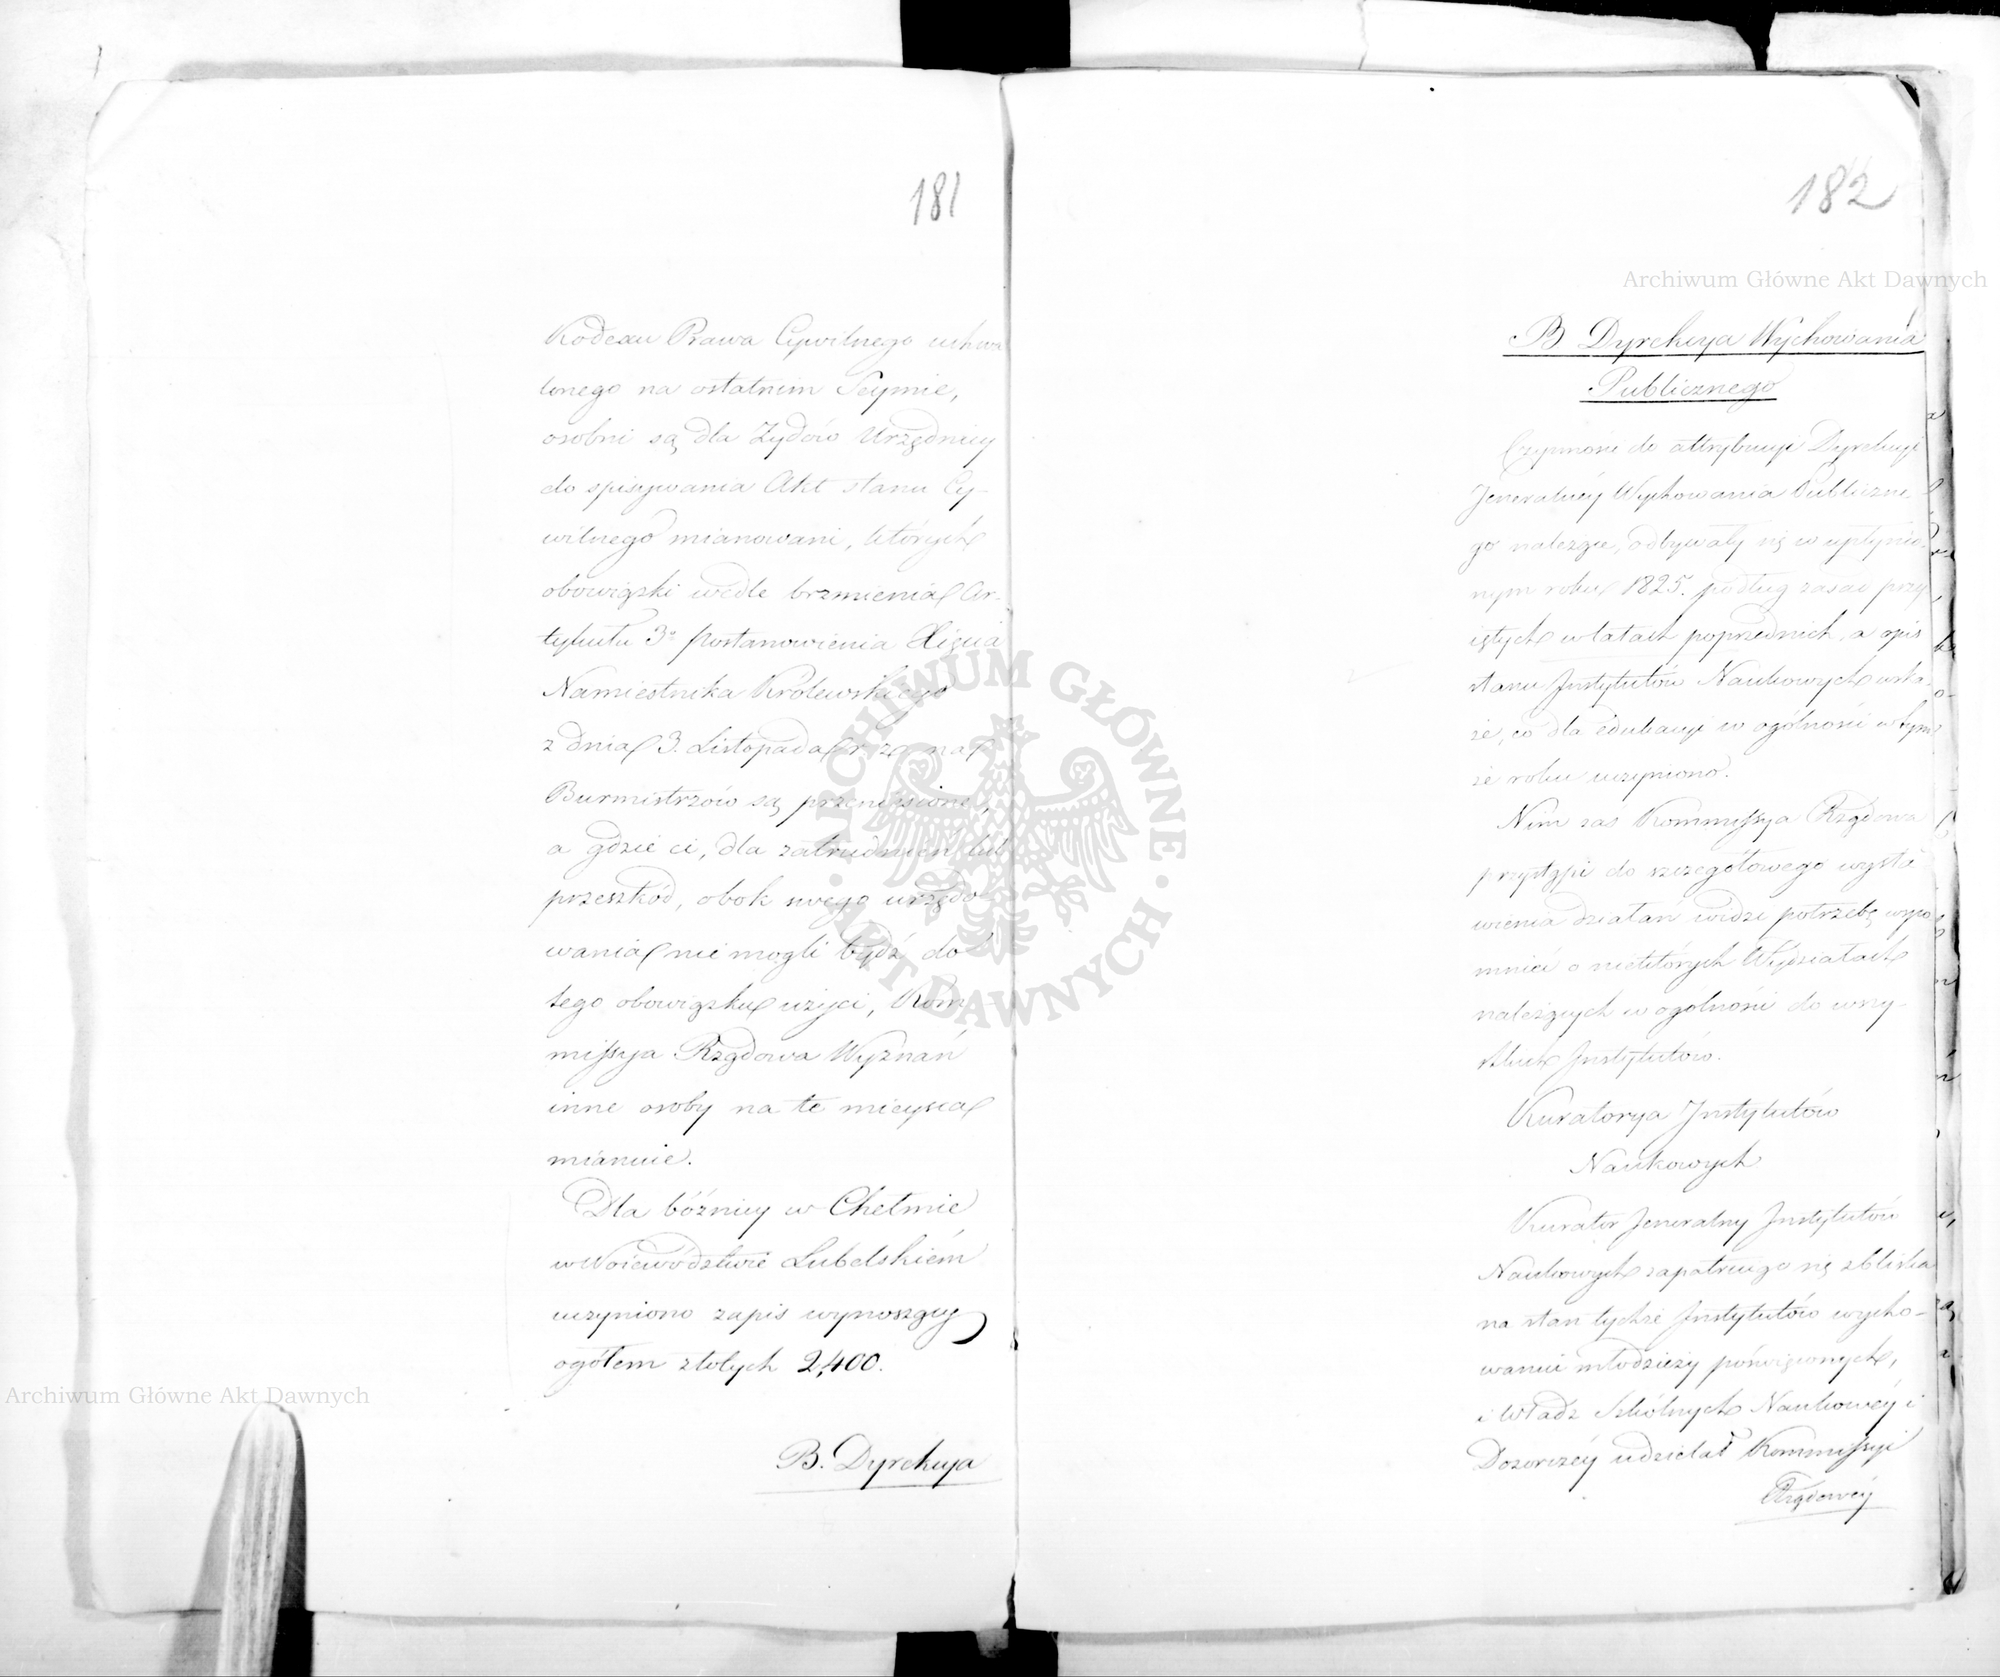 181
Kodexu Prawa Cywilnego uchwa
lonego na ostatnim Seymie,
osobni są dla Żydów Urzędnicy
do spisywania Akt stanu Cy-
wilnego mianowani, których
obowiązki wedle brzmienia Ar-
tykułu 3º Postanowienia Xięcia
Namiestnika Królewskiego
z dnia 3. Listopada r. z. na
Burmistrzów są przeniesione,
a gdzie ci, dla zatrudnień lub
przeszkód, obok swego urzędo-
wania nie mogli bydź do
tego obowiązku użyci, Kom-
missya Rządowa Wyznań
inne osoby na te mieysca
mianuie.
Dla bóźnicy w Chełmie
w Woiewództwie Lubelskiém
uczyniono zapis wynoszący
ogółem złotych 2,400.
B. Dyrekcya
182
B Dyrekcya Wychowania
Publicznego
Czynności do attrybucyi Dyrekcyi
Jeneralnéy Wychowania Publiczne-
go należące, odbywały się w upłynio-
nym roku 1825. podług zasad przy
iętych w latach poprzednich, a opis
stanu Instytutów Naukowych wska-
że, co dla edukacyi w ogólności w tym
że roku uczyniono.
Nim zaś Kommissya Rządowa
przystąpi do szczegółowego wysta
wienia działań widzi potrzebę wspo
mnieć o niektórych Wydziałach
należących w ogólności do wszy-
stkich Instytutów.
Kuratorya Instytutów
Naukowych
Kurator Jeneralny Instytutów
Naukowych zapatruiąc się zbliska
na stan tychże Instytutów wycho-
waniu młodzieży poświęconych,
i Władz Szkólnych Naukowéy i
Dozorczéy udzielał Kommissyi
Rządowéy
Archiwum Główne Akt Dawnych
Archiwum Główne Akt Dawnych
ARCHIWUM GŁÓWNE
AKT DAWNYCH